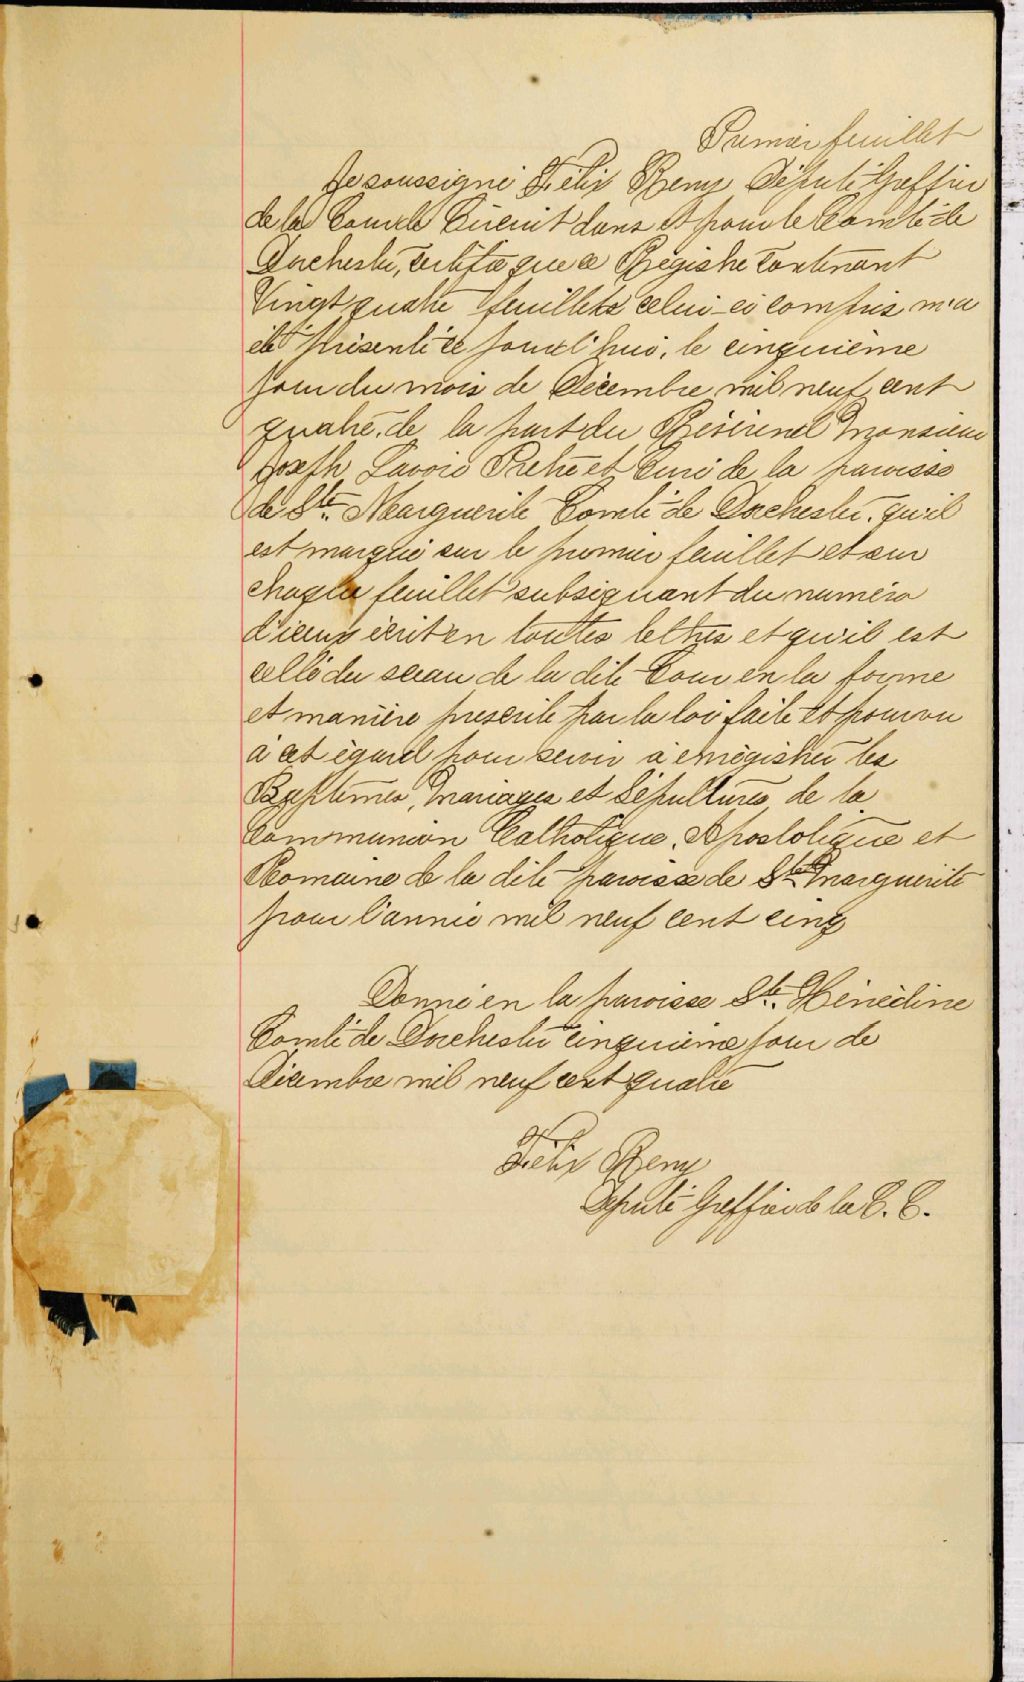 Premier feuillet
Je soussigné Félix Remy Député Greffier
de la Cour de Circuit dans et pour le Comté de
Dorchester, certifie que ce Régistre contenant
Vingt quatre feuillets celui-ci compris m'a
été présenté ce jourd'hui, le cinquième
jour du mois de Décembre mil neuf cent
quatre, de la part du Révérend Monsieur
Joseph Lavoie Prêtre et Curé de la paroisse
de Ste. Marguerite Comté de Dorchester, qu'il
est marqué sur le premier feuillet et sur
chaque feuillet subséquant du numéro
d'iceux écrit en toutes lettres et qu'il est
cellé du sceau de la dite Cour en la forme
et manière prescrite par la loi faite et pourvu
à cet égard pour servir à enrégistrer les
Baptêmes, Mariages et Sépultures, de la
Communion Catholique, Apostolique et
Romaine de la dite paroisse de Ste Marguerite
pour l'année mil neuf cent cinq
Donné en la paroisse Ste. Hénédine
Comté de Dorchester cinquième jour de
Décembre mil neuf cent quatre
Félix Remy
Député Greffier de la C. C.